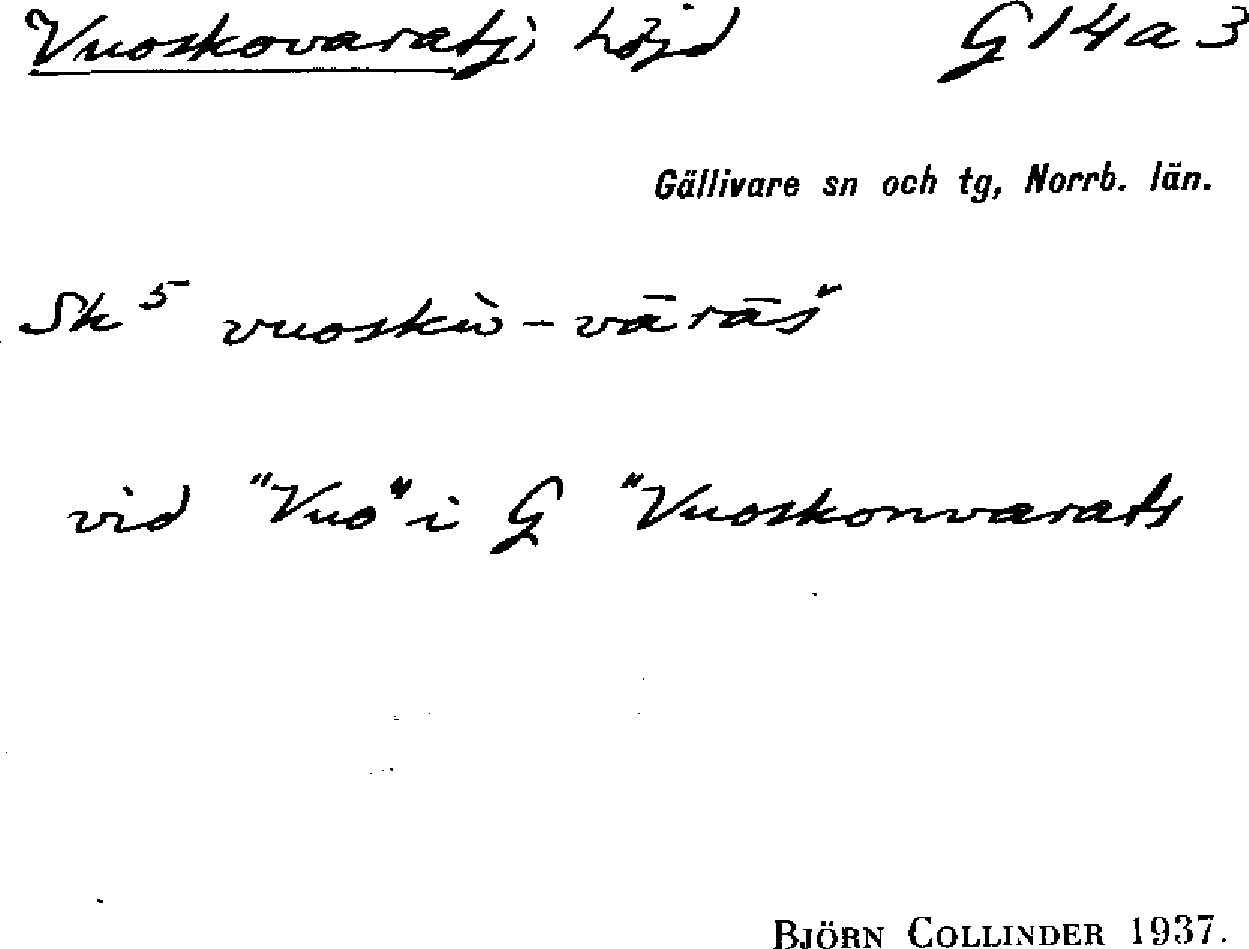 Vuoskovaratj, höjd G14a3
Gällivare sn och tg, Norrb. län.
Sk 5 vuoskù-vārāš
vid "Vuo" i G "Vuoskonvarats
BJÖRN COLLINDER 1937.